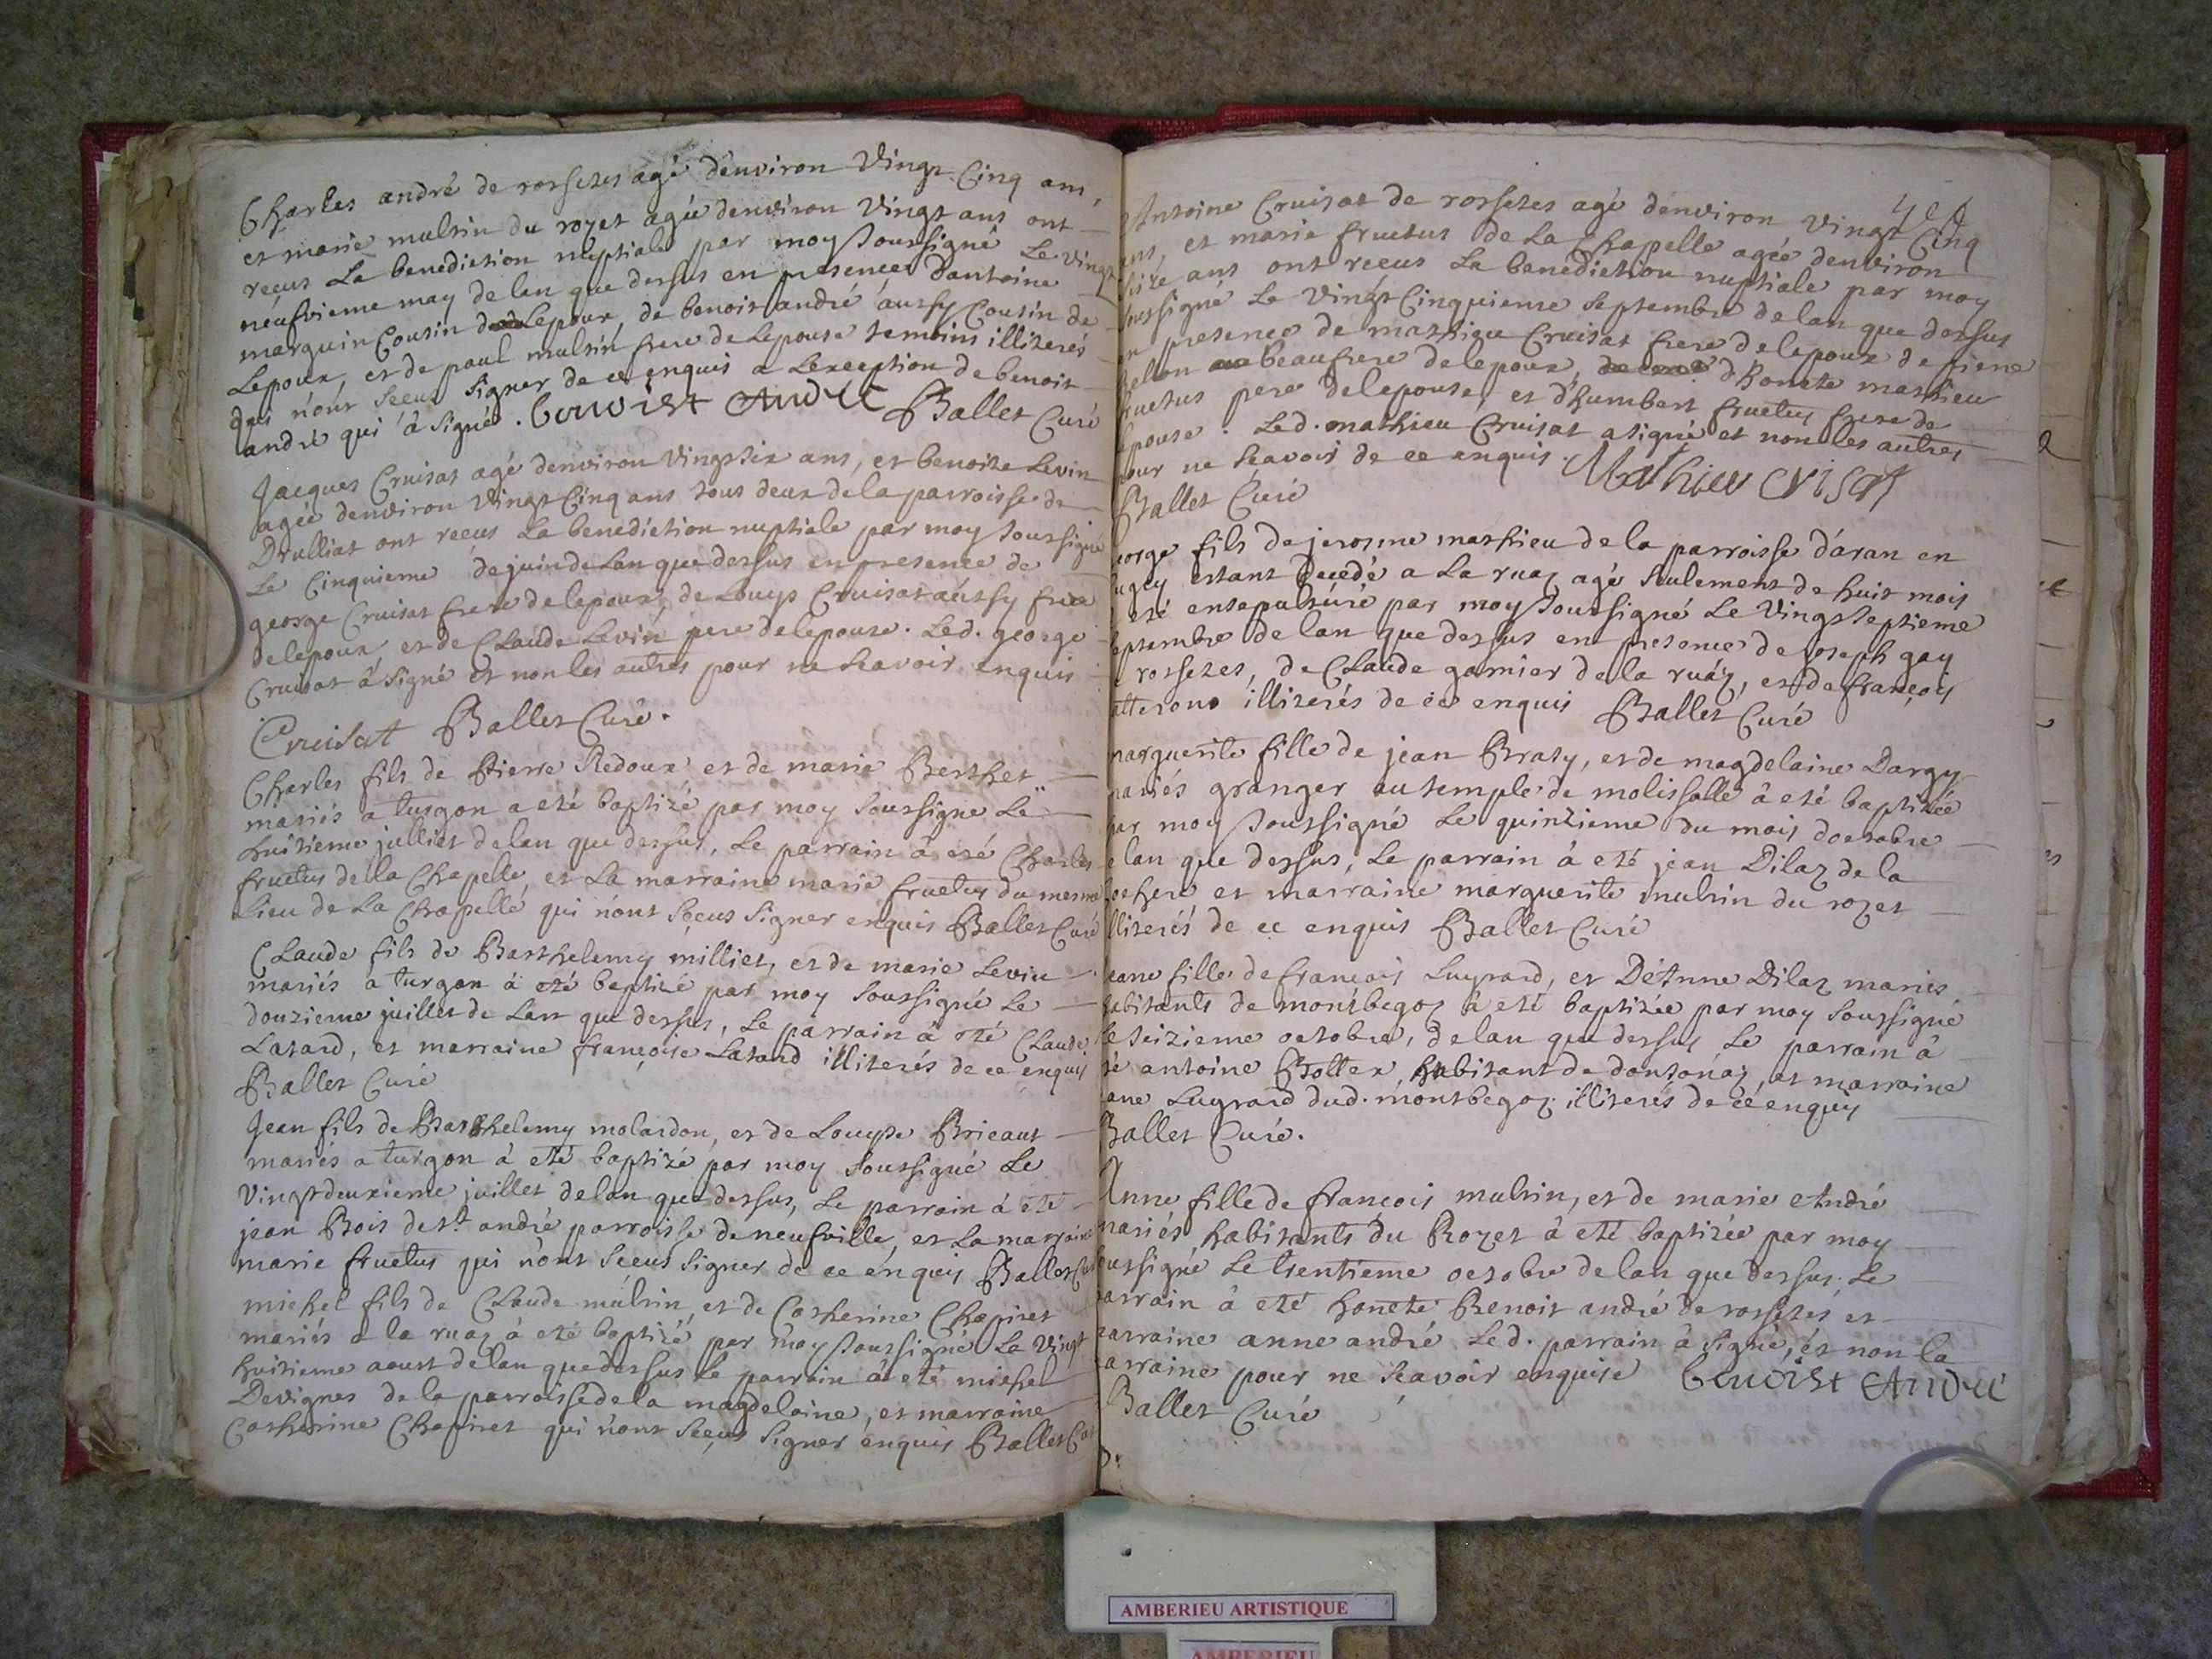 Charles andré de rossetes agé denviron Vingt Cinq ans,
et marie multin du royet agée denviron Vingt ans ont
reçus La benediction nuptiale par moy soussigné Le Vingt
neufvieme may de lan que dessus en presence dantoine
marguin Cousin de Lepoux, de benoit andré aussy Cousin de
Lepoux, et de paul multin frere de Lepouse temoins illiterés
qui n'ont sceus signer de ce enquis a Lexception de benoit
andré qui à signé. benoist Andre Ballet Curé
Jacques Cruisat agé denviron Vingt six ans, et benoite Levin
agée denviron Vingt Cinq ans tous deux de la parroisse de
Drulliat ont reçus La benediction nuptiale par moy soussigné
Le Cinquieme de juin de Lan que dessus en presence de
george Cruisat frere de lepoux, de Louys Cruisat aussy frere
de lepoux et de Claude Levin pere de lepouse. Led. george
Cruisat à signé et non les autres pour ne sçavoir enquis
Cruisat Ballet Curé.
Charles fils de Pierre Redoux et de marie Berthet
mariés a turgon a eté baptizé par moy soussigné Le
huitieme julliet de lan que dessus, Le parrain à eté Charles
fructus de la Chapelle, et La marraine marie fructus du mesme
Lieu de La Chapelle qui n'ont sçeus signer enquis Ballet Curé
Claude fils de Barthelemy milliet, et de marie Levin
mariés a turgon à eté baptizé par moy soussigné Le
douzieme juillet de Lan que dessus, Le parrain à eté Claude
Latard, et marraine françoise Latard illiterés de ce enquis
Ballet Curé
Jean fils de Barthelemy molardon, et de Louyse Bricaut
mariés a turgon à eté baptizé par moy soussigné Le
Vingt deuxieme juillet de lan que dessus, Le parrain à eté
jean Bois de st. andré parroisse de neufville, et La marraine
marie fructus qui n'ont sceus signer de ce enquis Ballet Curé
michel fils de Claude multin, et de Catherine Chapiret
mariés a la ruaz à eté baptizé par moy soussigné Le Vingt
huitieme aoust de lan que dessus Le parrain à eté michel
Devignes de la parroisse de la magdelaine, et marraine
Catherine Chapiret qui n'ont sçeus signer enquis Ballet Curé
Antoine Cruisat de rossetes agé denviron Vingt Cinq
ans, et marie fructus de La Chapelle agée denviron
seize ans ont reçeus La benediction nuptiale par moy
soussigné Le Vingt Cinquieme septembre de lan que dessus
en presence de mathieu Cruisat frere de lepoux de pierre
beaufrere de lepoux, d'honete mathieu
fructus pere de lepouse, et d'humbert fructus frere de
epouse. Led. mathieu Cruisat a signé et non les autres
pour ne sçavoir de ce enquis. Mathieu Crisat
Ballet Curé
eorge fils de jerosme mathieu de la parroisse d'aran en
ugey estant decedé a La ruaz agé seulement de huit mois
eté ensepulturé par moy soussigné Le Vingt septieme
eptembre de lan que dessus en presence de joseph gay
rossetes, de Claude garnier de la ruaz, et de françois
illiterés de ce enquis Ballet Curé
marguerite fille de jean Braty, et de magdelaine Dargy
mariés granger au temple de molissolle à eté baptizée
par moy soussigné Le quinzieme du mois doctobre
de lan que dessus, Le parrain à eté jean Dilaz de la
et marraine marguerite multin du rozet
illiterés de ce enquis Ballet Curé
jeane fille de françois Luyrard, et De Anne Dilaz mariés
habitants de montbegoz à eté baptizée par moy soussigné
Le seizieme octobre, de lan que dessus Le parrain à
eté antoine Bollex habitant de dontonaz, et marraine
jane Luyrard dud. montbegoz illiterés de ce enquis
Ballet Curé.
Anne fille de françois multin, et de marie André
mariés habitants du Rozet à eté baptizée par moy
soussigné Le trentieme octobre de lan que dessus. Le
parrain à eté honete Benoit andré de rossetes et
marraine anne andré Led. parrain à signé, et non la
marraine pour ne sçavoir enquise benoist Andre
Ballet Curé
AMBERIEU ARTISTIQUE
AMBERIEU